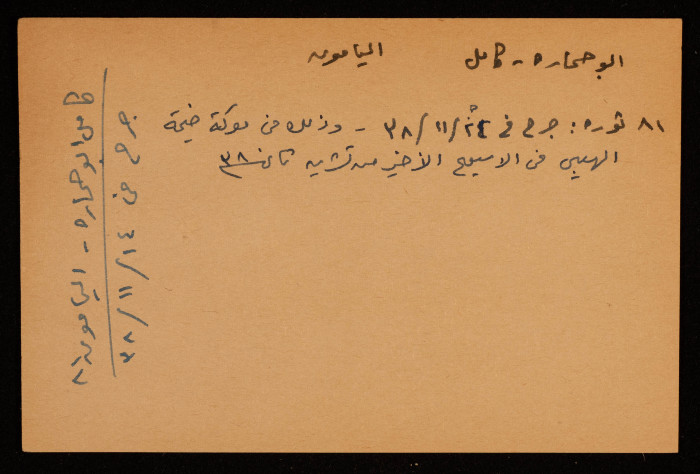 ابو حماره - كامل اليامون
٨١ ثوره: جرح في ٢٤/١١/٣٨ - وذلك في معركة خيمة
الهيبي في الاسبوع الأخير من تشرين ثاني ٣٨
كامل ابو حماره - اليامون
جرح في ١٤/١١/٣٨